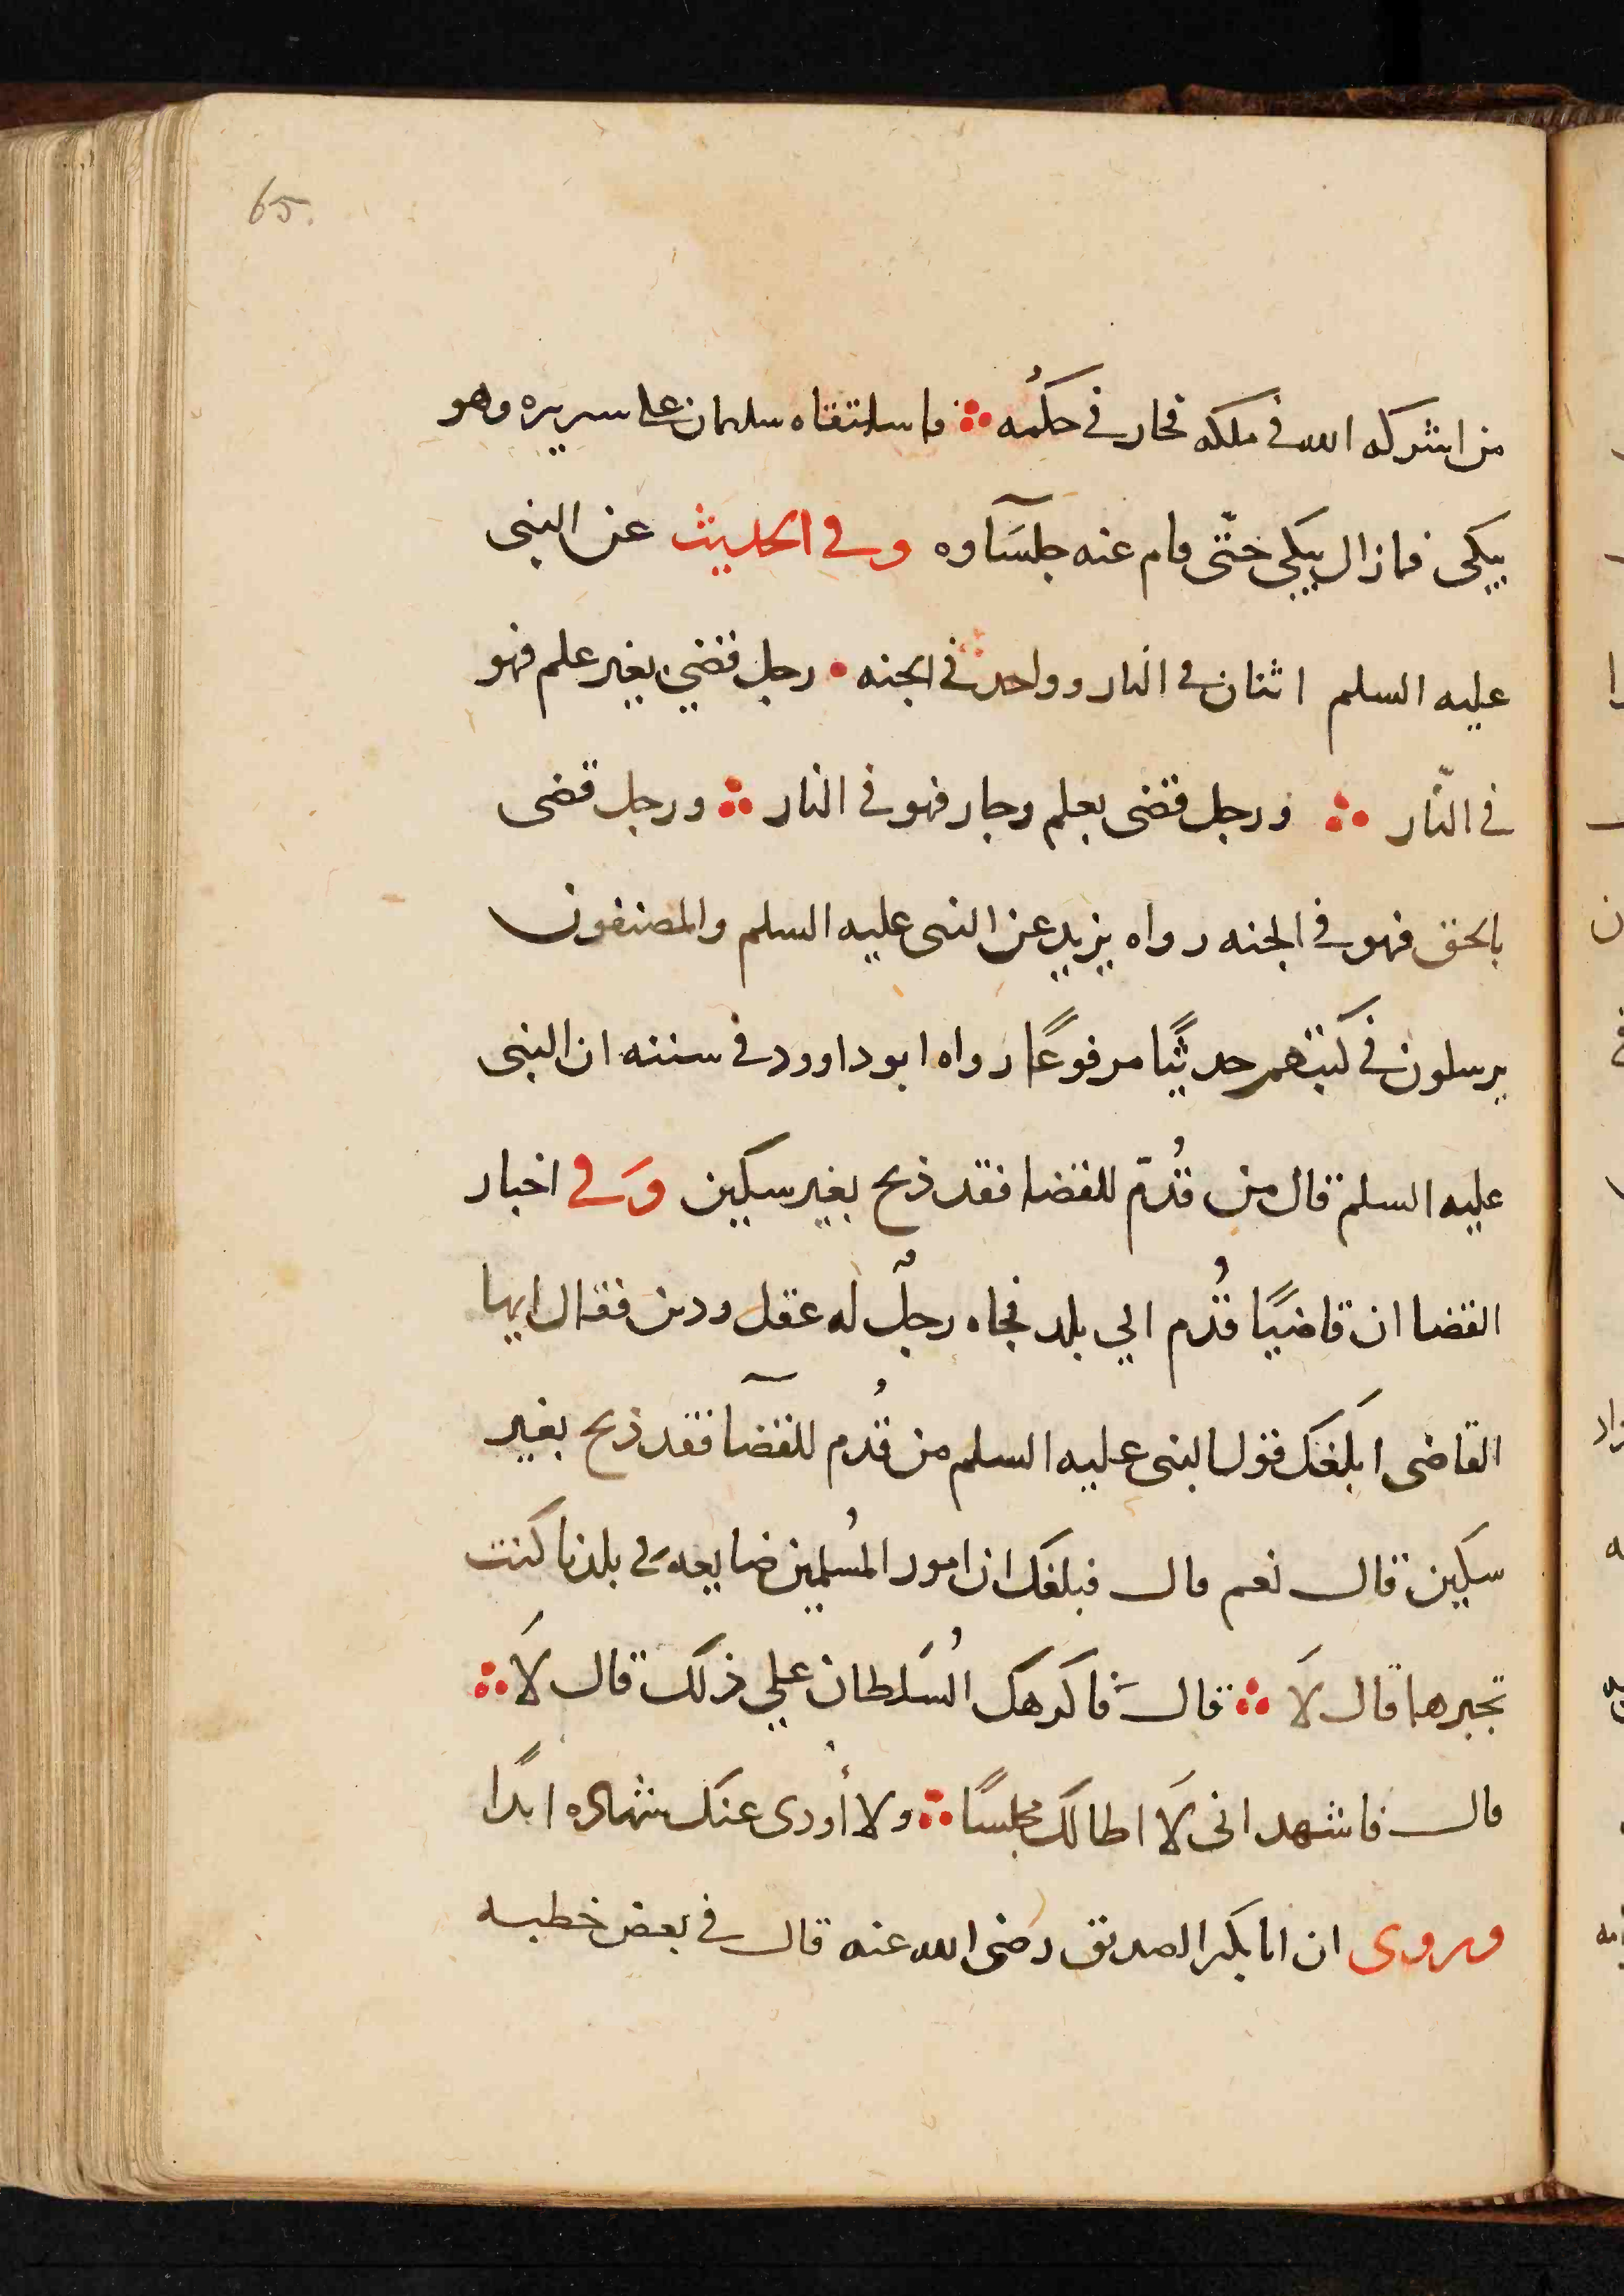 65.
من اشركه الله في ملكه فجار في حكمُه ؞ فاستلقاه سليمان على سريره وهو
يبكى فمازال يبكى حتّى قام عنه جلسَآوه وفى الحديث عن النبى
عليه السلم اثنان في النار وواحد في الجنه • رجل قضي بغير علم فهو
في النّار ؞ ورجل قضى بعلم وجار فهو في النار ؞ ورجل قضى
بالحق فهو في الجنه رواه يزيد عن النبى عليه السلم والمصنفون
يرسلون في كتبهم حديثًا مرفوعًا رواه ابو داوود في سننه ان النبى
عليه السلم قال من قُدّم للقضا فقد ذبح بغير سكين وَفى اخبار
القضا ان قاضيًا قُدم الي بلد فجاه رجلٌ له عقل ودين فقال ايها
القاضى ابلغك قول النبى عليه السلم من قُدم للقضآ فقد ذبح بغير
سكين قال نعم قال فبلغك ان امور المُسلمين ضايعه في بلدنا كنت
تجبرها قال لَا ؞ قال فاكرهك السُلطان علي ذلك قال لَا ؞
قال فاشهد انى لَا اطالك مجلسًا ؞ ولا أودى عندك شهاده ابدًا
وروى ان ابا بكر الصديق رضى الله عنه قال في بعض خطبه